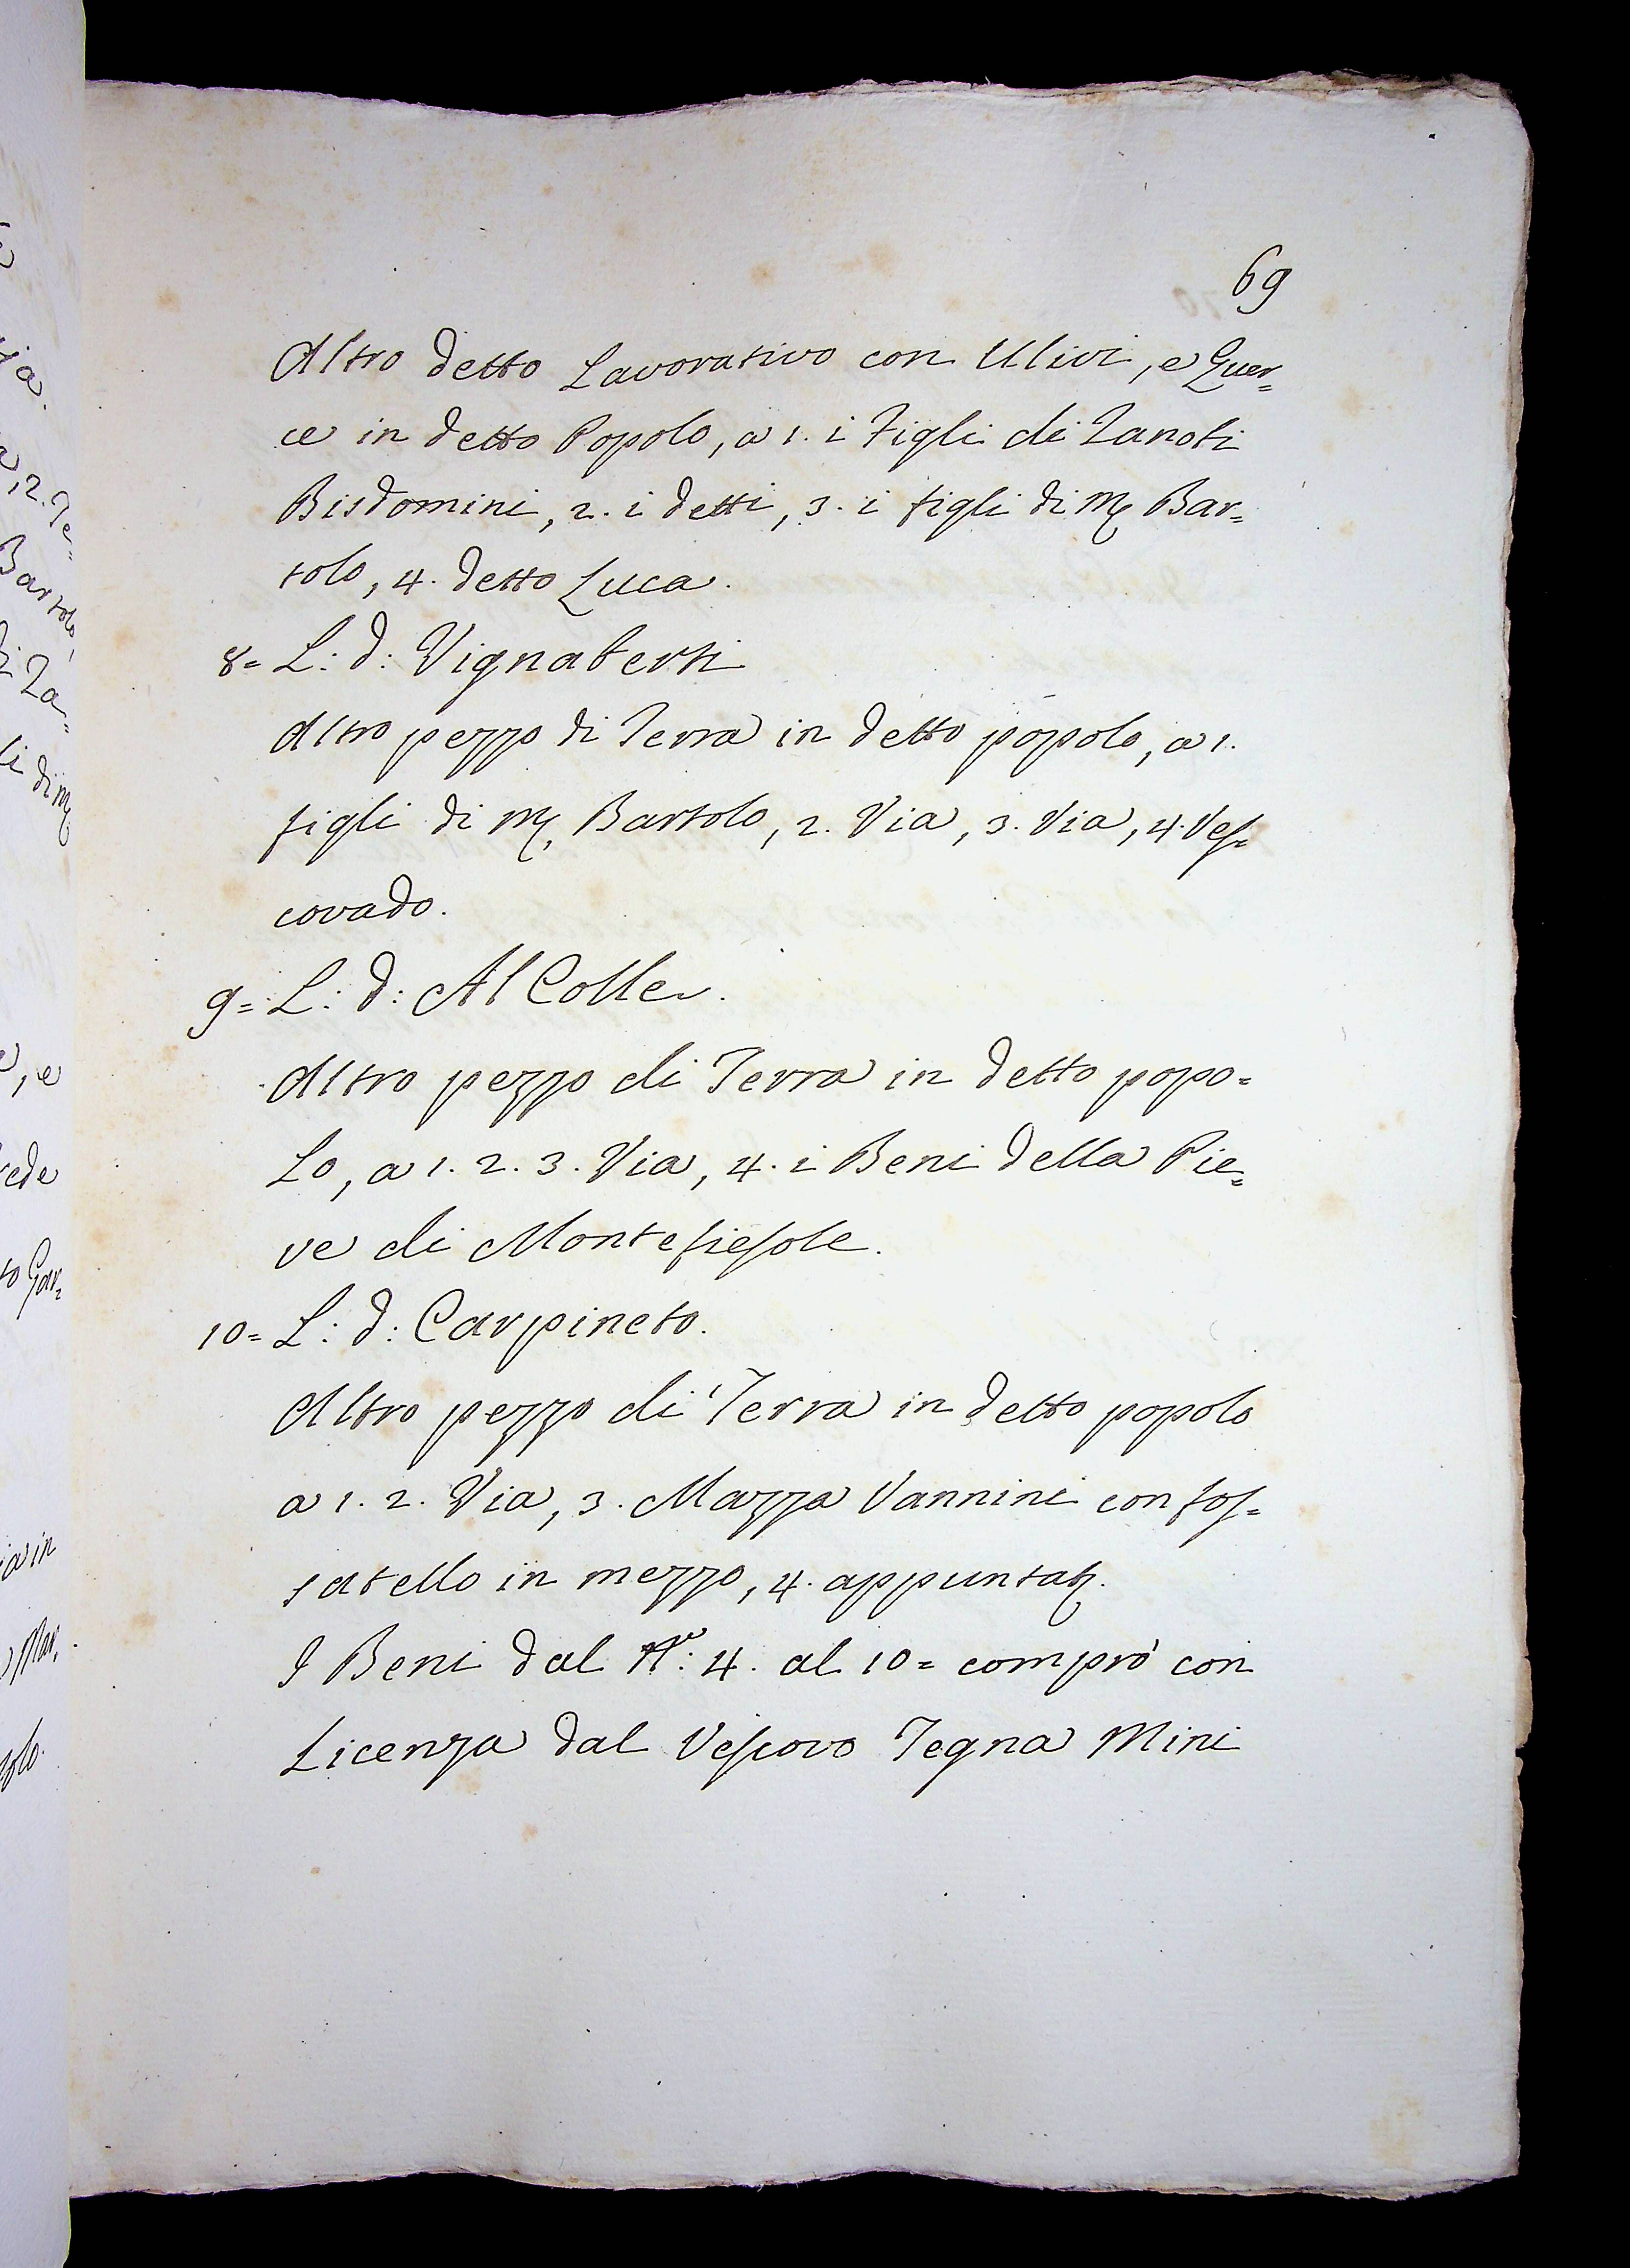 69
Altro detto Lavorativo con Ulivi, e Quer=
ce in detto Popolo, a 1. i Figli di Zanobi
Bisdomini, 2. i detti, 3. i figli di M. Bar=
tolo, 4. detto Luca.
8= L: d: Vignaberti
Altro pezzo di Terra in detto popolo, a 1.
figli di M. Bartolo, 2. Via, 3. Via, 4. Ves=
covado.
9= L: d: Al Colle.
Altro pezzo di Terra in detto popo=
lo, a 1. 2. 3. Via, 4. i Beni della Pie=
ve di Montefiesole.
10= L: d: Carpineto.
Altro pezzo di Terra in detto popolo
a 1. 2. Via, 3. Mazza Vannini con fos=
satello in mezzo, 4. appuntat.
I Beni dal N.º: 4. al 10= comprò con
Licenza dal Vescovo Tegna Mini